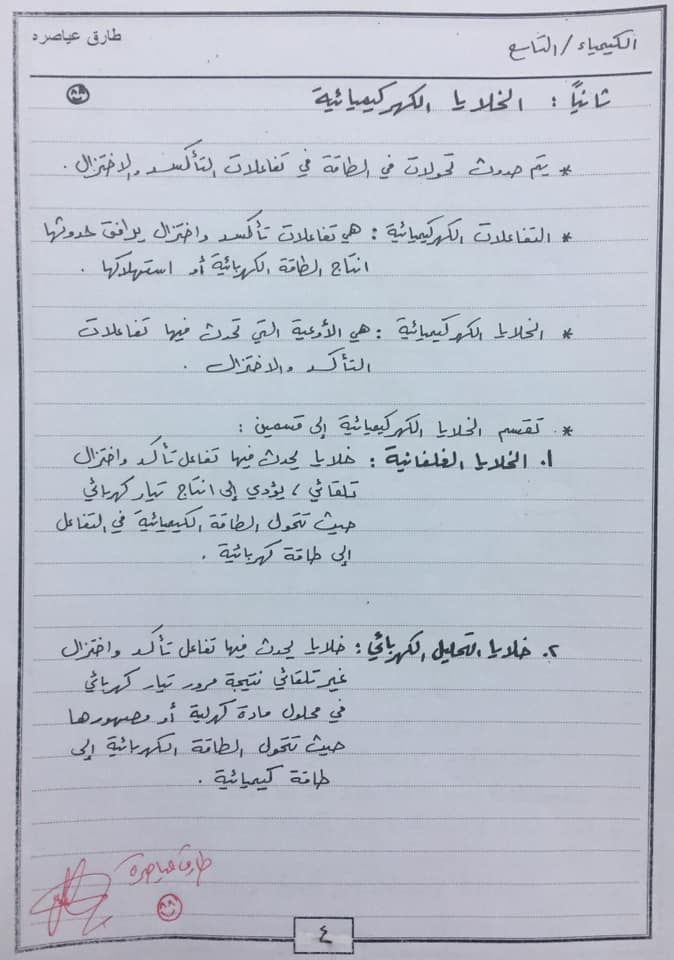 الكيمياء / التاسع
طارق عياصره
ثانيًا : الخلايا الكهركيميائية
* يتم حدوث تحولات في الطاقة في تفاعلات التأكسد والاختزال .
* التفاعلات الكهركيميائية : هي تفاعلات تأكسد واختزال يرافق حدوثها
انتاج الطاقة الكهربائية أو استهلاكها .
* الخلايا الكهركيميائية : هي الأوعية التي تحدث فيها تفاعلات
التأكسد والاختزال .
* تقسم الخلايا الكهركيميائية إلى قسمين :
١. الخلايا الغلفانية : خلايا يحدث فيها تفاعل تأكسد واختزال
تلقائي ، يؤدي إلى انتاج تيار كهربائي
حيث تتحول الطاقة الكيميائية في التفاعل
إلى طاقة كهربائية .
٢. خلايا التحليل الكهربائي : خلايا يحدث فيها تفاعل تأكسد واختزال
غير تلقائي نتيجة مرور تيار كهربائي
في محلول مادة كهرلية أو مصهورها
حيث تتحول الطاقة الكهربائية إلى
طاقة كيميائية .
طارق عياصرة
٤